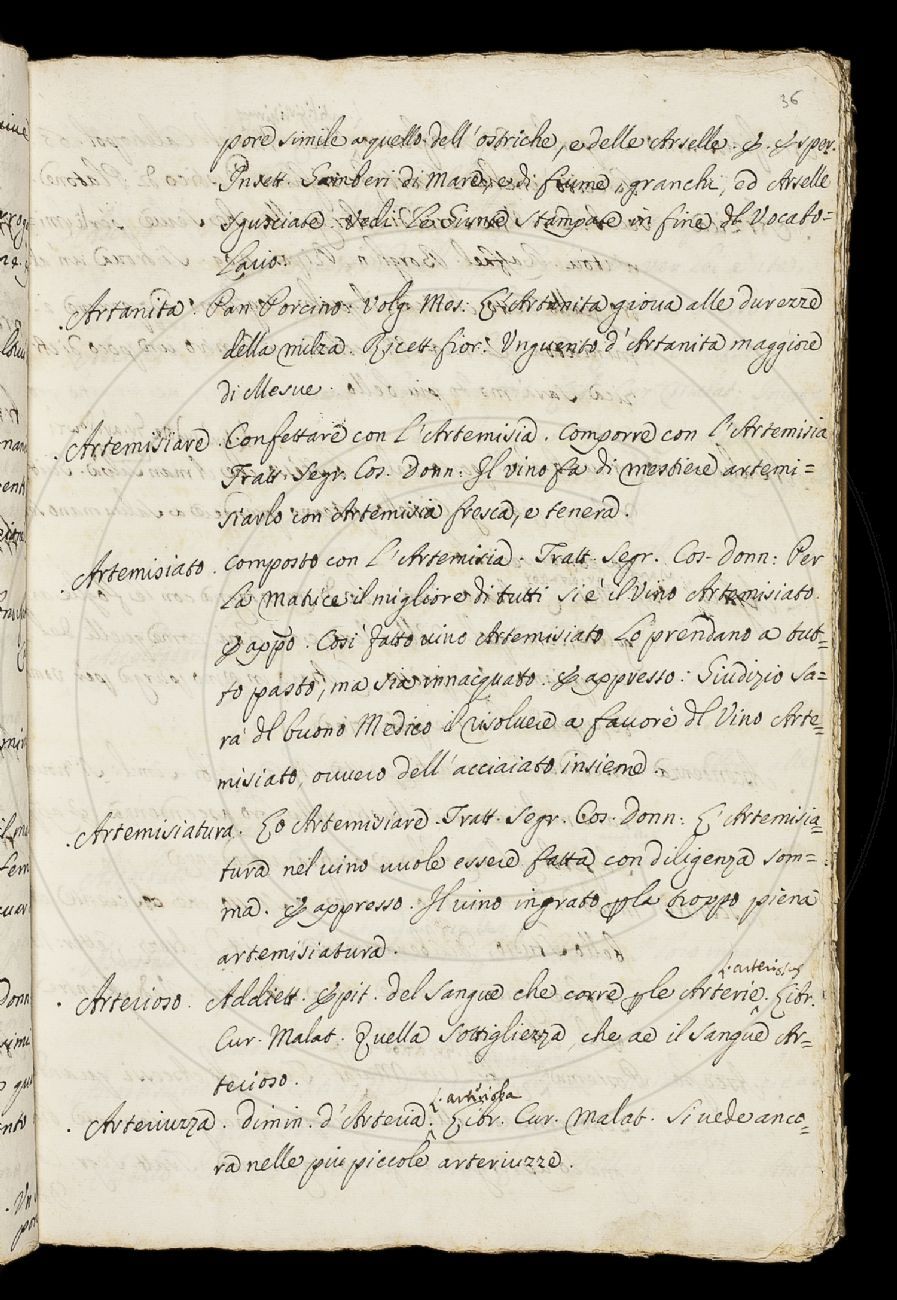 36
pore simile a quello dell'ostriche, e delle Arselle. & Esper.
Insett. Gamberi di Mare, e di fiume, granchi, ed Arselle
sgusciate. Vedi le Giunte stampate in fine dl Vocabo=
lario.
Artanita. Pan Porcino. Volg. Mes. L'Artanita giova alle durezze
della milza. Ricett. fior. Unguento d'Artanita maggiore
di Mesue.
Artemisiare. Confettare con l'Artemisia. Comporre con l'Artemisia
Tratt. Segr. Cos. Donn. Il vino fa di mestiere artemi=
siarlo con Artemisia fresca, e tenera.
Artemisiato. Composto con l'Artemisia. Tratt. Segr. Cos. Donn: Per
la matrice il migliore di tutti si è il vino Artemisiato.
& appo. Così fatto vino Artemisiato lo prendano a tut=
to pasto, ma sia innacquato. & appresso: Giudizio sa=
rà dl buono Medico il risolvere a favore dl Vino Arte=
misiato, ovvero dell'acciaiato insieme.
Artemisiatura. Lo Artemisiare. Tratt. Segr. Cos. Donn: L'Artemisia=
tura nel vino vuole essere fatta con diligenza som=
ma. & appresso. Il vino ingrato p la troppo piena
artemisiatura.
L. arteriosus
Arterioso. Addiett. Epit. del sangue che corre p le Arterie. Libr.
Cur. Malat. Quella sottigliezza, che ae il sangue Ar=
terioso.
L. arteriola
Arteriuzza. dimin. d'Arteria. Libr. Cur. Malat. Si vede anco=
ra nelle più piccole arteriuzze.